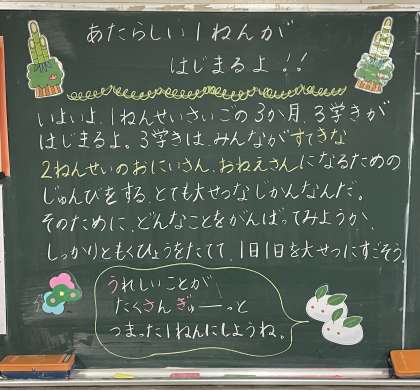 あたらしい1ねんが
はじまるよ!!
いよいよ、1ねんせいさいごの3か月、3学きが
はじまるよ。3学きは、みんながすてきな
2ねんせいのおにいさん、おねえさんになるための
じゅんびをする、とても大せつなじかんなんだ。
そのために、どんなことをがんばってみようか、
しっかりともくひょうをたてて、1日1日を大せつにすごそう。
うれしいことが
たくさんぎゅーっと
つまった1ねんにしようね。